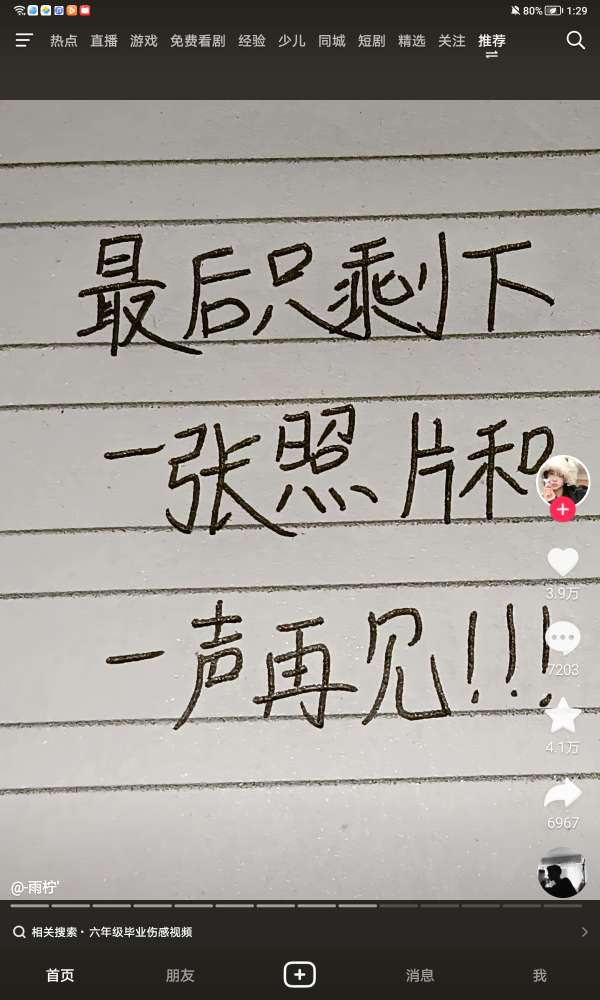 80% 1:29
热点 直播 游戏 免费看剧 经验 少儿 同城 短剧 精选 关注 推荐
最后只剩下
一张照片和
一声再见!!!
3.9万
7203
4.1万
6967
@-雨柠'
相关搜索·六年级毕业伤感视频
首页 朋友 消息 我